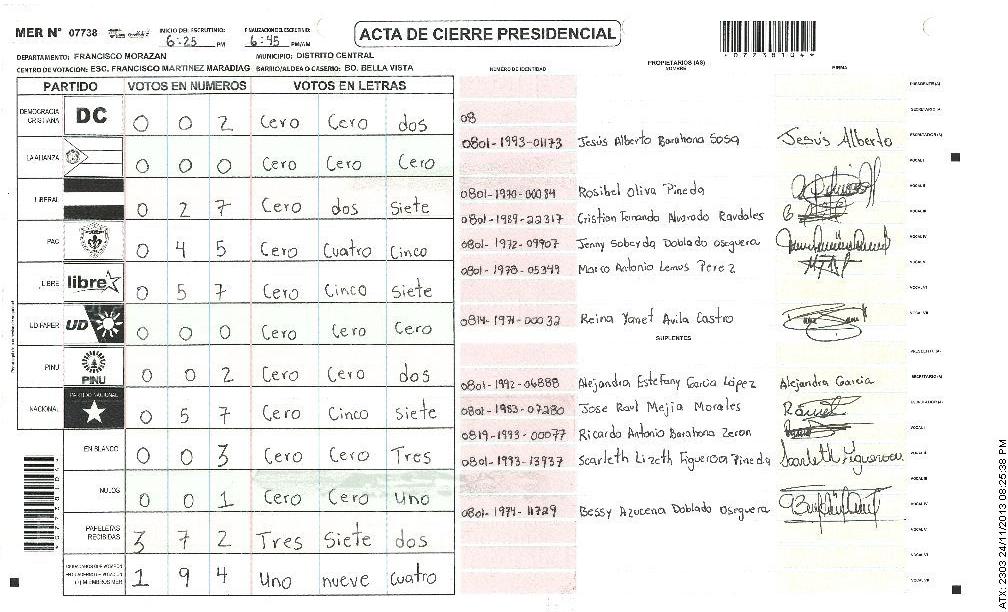 MER N° 07738 INICIO DEL ESCRUTINIO: 6:25 PM FINALIZACION DEL ESCRUTINIO: 6:45 PM/AM ACTA DE CIERRE PRESIDENCIAL
DEPARTAMENTO: FRANCISCO MORAZAN MUNICIPIO: DISTRITO CENTRAL
CENTRO DE VOTACION: ESC. FRANCISCO MARTINEZ MARADIAG BARRIO/ALDEA O CASERIO: BO. BELLA VISTA
NUMERO DE IDENTIDAD PROPIETARIOS (AS) NOMBRE FIRMA
PARTIDO VOTOS EN NUMEROS VOTOS EN LETRAS
DEMOCRACIA CRISTIANA DC 0 0 2 Cero Cero dos
LA ALIANZA 0 0 0 Cero Cero Cero
LIBERAL 0 2 7 Cero dos Siete
PAC 0 4 5 Cero Cuatro Cinco
LIBRE libre 0 5 7 Cero Cinco Siete
UD FAPER UD 0 0 0 Cero Cero Cero
PINU PINU 0 0 2 Cero Cero dos
NACIONAL PARTIDO NACIONAL 0 5 7 Cero Cinco siete
EN BLANCO 0 0 3 Cero Cero Tres
NULOS 0 0 1 Cero Cero uno
PAPELETAS RECIBIDAS 3 7 2 Tres Siete dos
1 9 4 uno nueve cuatro
08
0801-1993-01173 Jesús Alberto Barahona Sosa Jesús Alberto
0801-1970-00084 Rosibel Oliva Pineda
0801-1989-22317
0801-1972-09907 Jenny Soberda Doblado oseguera
0801-1978-05349 Marco Antonio Lemus Perez
0814-1971-00032 Reina Yanet Avila Castro
SUPLENTES
0801-1992-06888 Alejandra Estefany Garcia López Alejandra Garcia
0801-1983-07280 Jose Raul Mejia Morales
0819-1993-00077 Ricardo Antonio Barahona Zeron
0801-1993-13937 Scarleth Lizeth Figueroa Pineda Scarleth Figueroa
0801-1974-11729 Bessy Azucena Doblado Oseguera
ATX: 2303 24/11/2013 08:25:38 PM